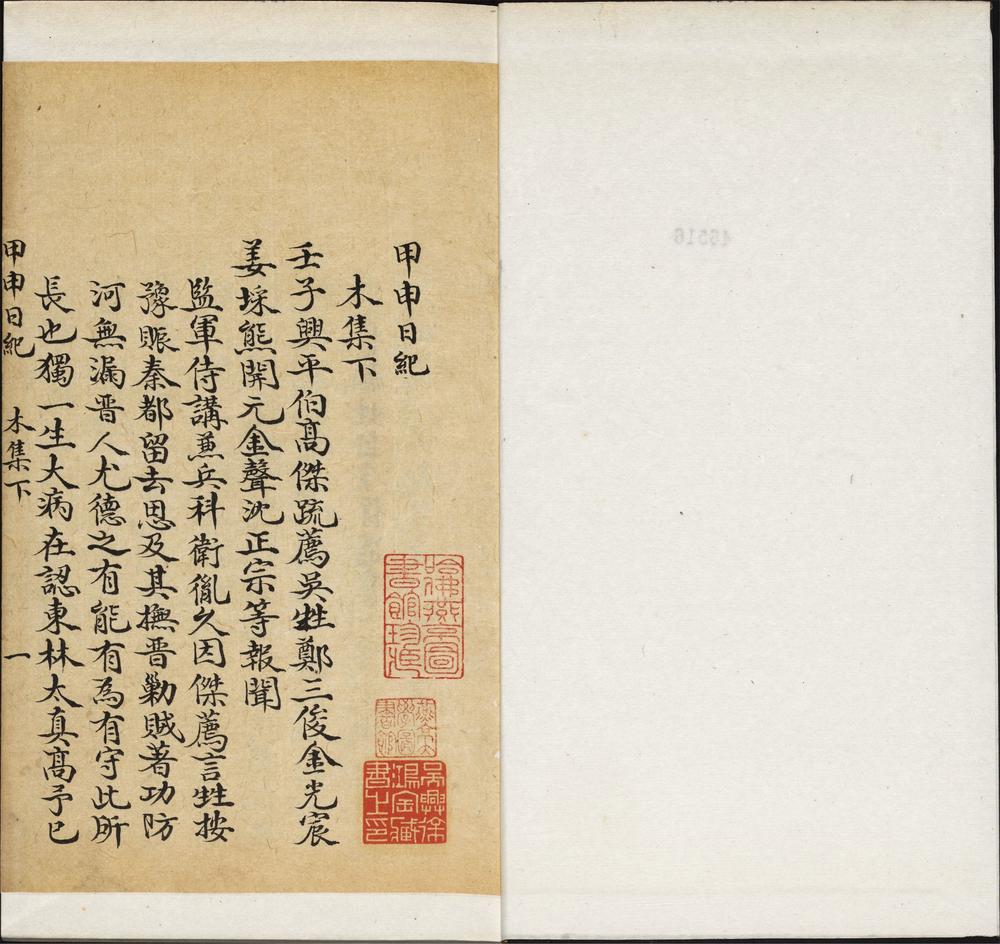 甲申日紀
木集下
壬子興平伯高傑疏薦吳甡鄭三俊金光宸
姜埰熊開元金聲沈正宗等報聞
監軍侍講兼兵科衛胤久因傑薦言甡按
豫賑秦都留去思及其撫晋勦賊著功防
河無漏晋人尤德之有能有為有守此所
長也獨一生大病在認東林太真高予已
甲申日紀 木集下 一
哈佛燕京圖書館珍藏
吳興徐鴻寶藏書之印
46516